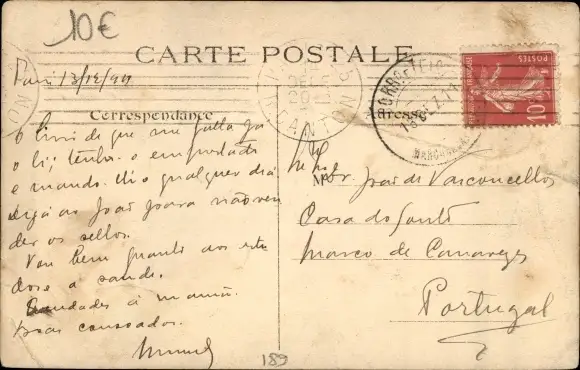 10€
CARTE POSTALE
Paris 13/12/911
Correspondance
Adresse
POSTES
10
O livro de que me falta já
o li; tenho-o emprestado
e mando-lh'o qualquer dia
Diga ao João para não ven
der os sellos.
Vou bem quanto aos estu
dos e a saude.
Saudades á mamã.
M
Sr. João de Vasconcellos
Casa do Souto
Marco de Canavezes
Portugal
189